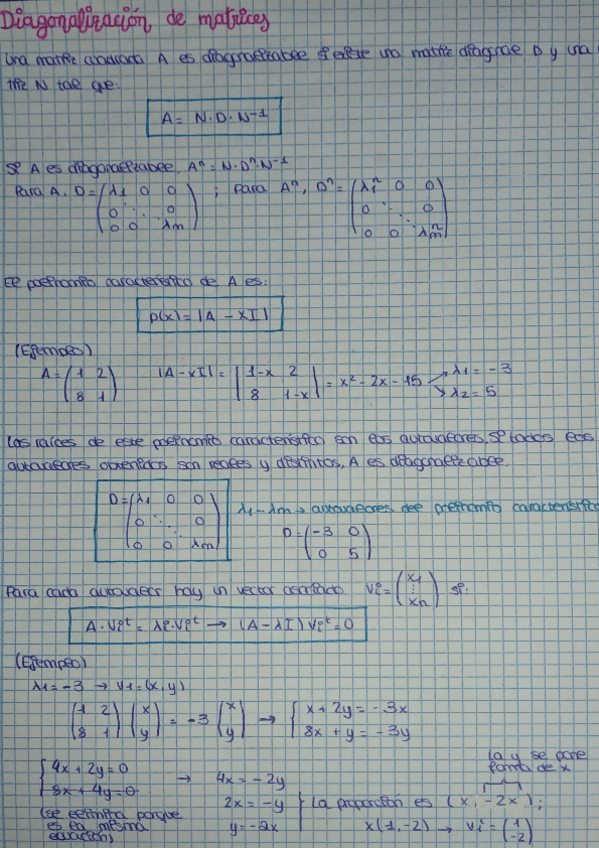 Diagonalización de matrices
Una matriz cuadrada A es diagonalizable si existe una matriz diagonal D y una
triz N tal que:
A = N·D·N⁻¹
Si A es diagonalizable, Aⁿ = N·Dⁿ·N⁻¹
Para A, D = (λ1 0 0 ; 0 ⋱ 0 ; 0 0 λm) ; Para Aⁿ, Dⁿ = (λ1ⁿ 0 0 ; 0 ⋱ 0 ; 0 0 λmⁿ)
El polinomio característico de A es:
p(x) = |A - xI|
(Ejemplo)
A = (1 2 ; 8 1) |A - xI| = |1-x 2 ; 8 1-x| = x² - 2x - 15 → λ1 = -3
λ2 = 5
Las raíces de este polinomio característico son los autovalores. Si todos los
autovalores obtenidos son reales y distintos, A es diagonalizable.
D = (λ1 0 0 ; 0 ⋱ 0 ; 0 0 λm) λ1 - λm → autovalores del polinomio característico
D = (-3 0 ; 0 5)
Para cada autovalor hay un vector asociado Vi = (x1 ⋮ xn) si:
A·Viᵗ = λi·Viᵗ → (A - λI) Viᵗ = 0
(Ejemplo)
λ1 = -3 → V1 = (x, y)
(1 2 ; 8 1) (x ; y) = -3 (x ; y) → { x + 2y = -3x
8x + y = -3y
{ 4x + 2y = 0 → 4x = -2y
8x + 4y = 0 2x = -y
(se elimina porque es la misma ecuación) y = -2x
La y se pone
forma de x
La proporción es (x, -2x);
x(1, -2) → Vi = (1 ; -2)